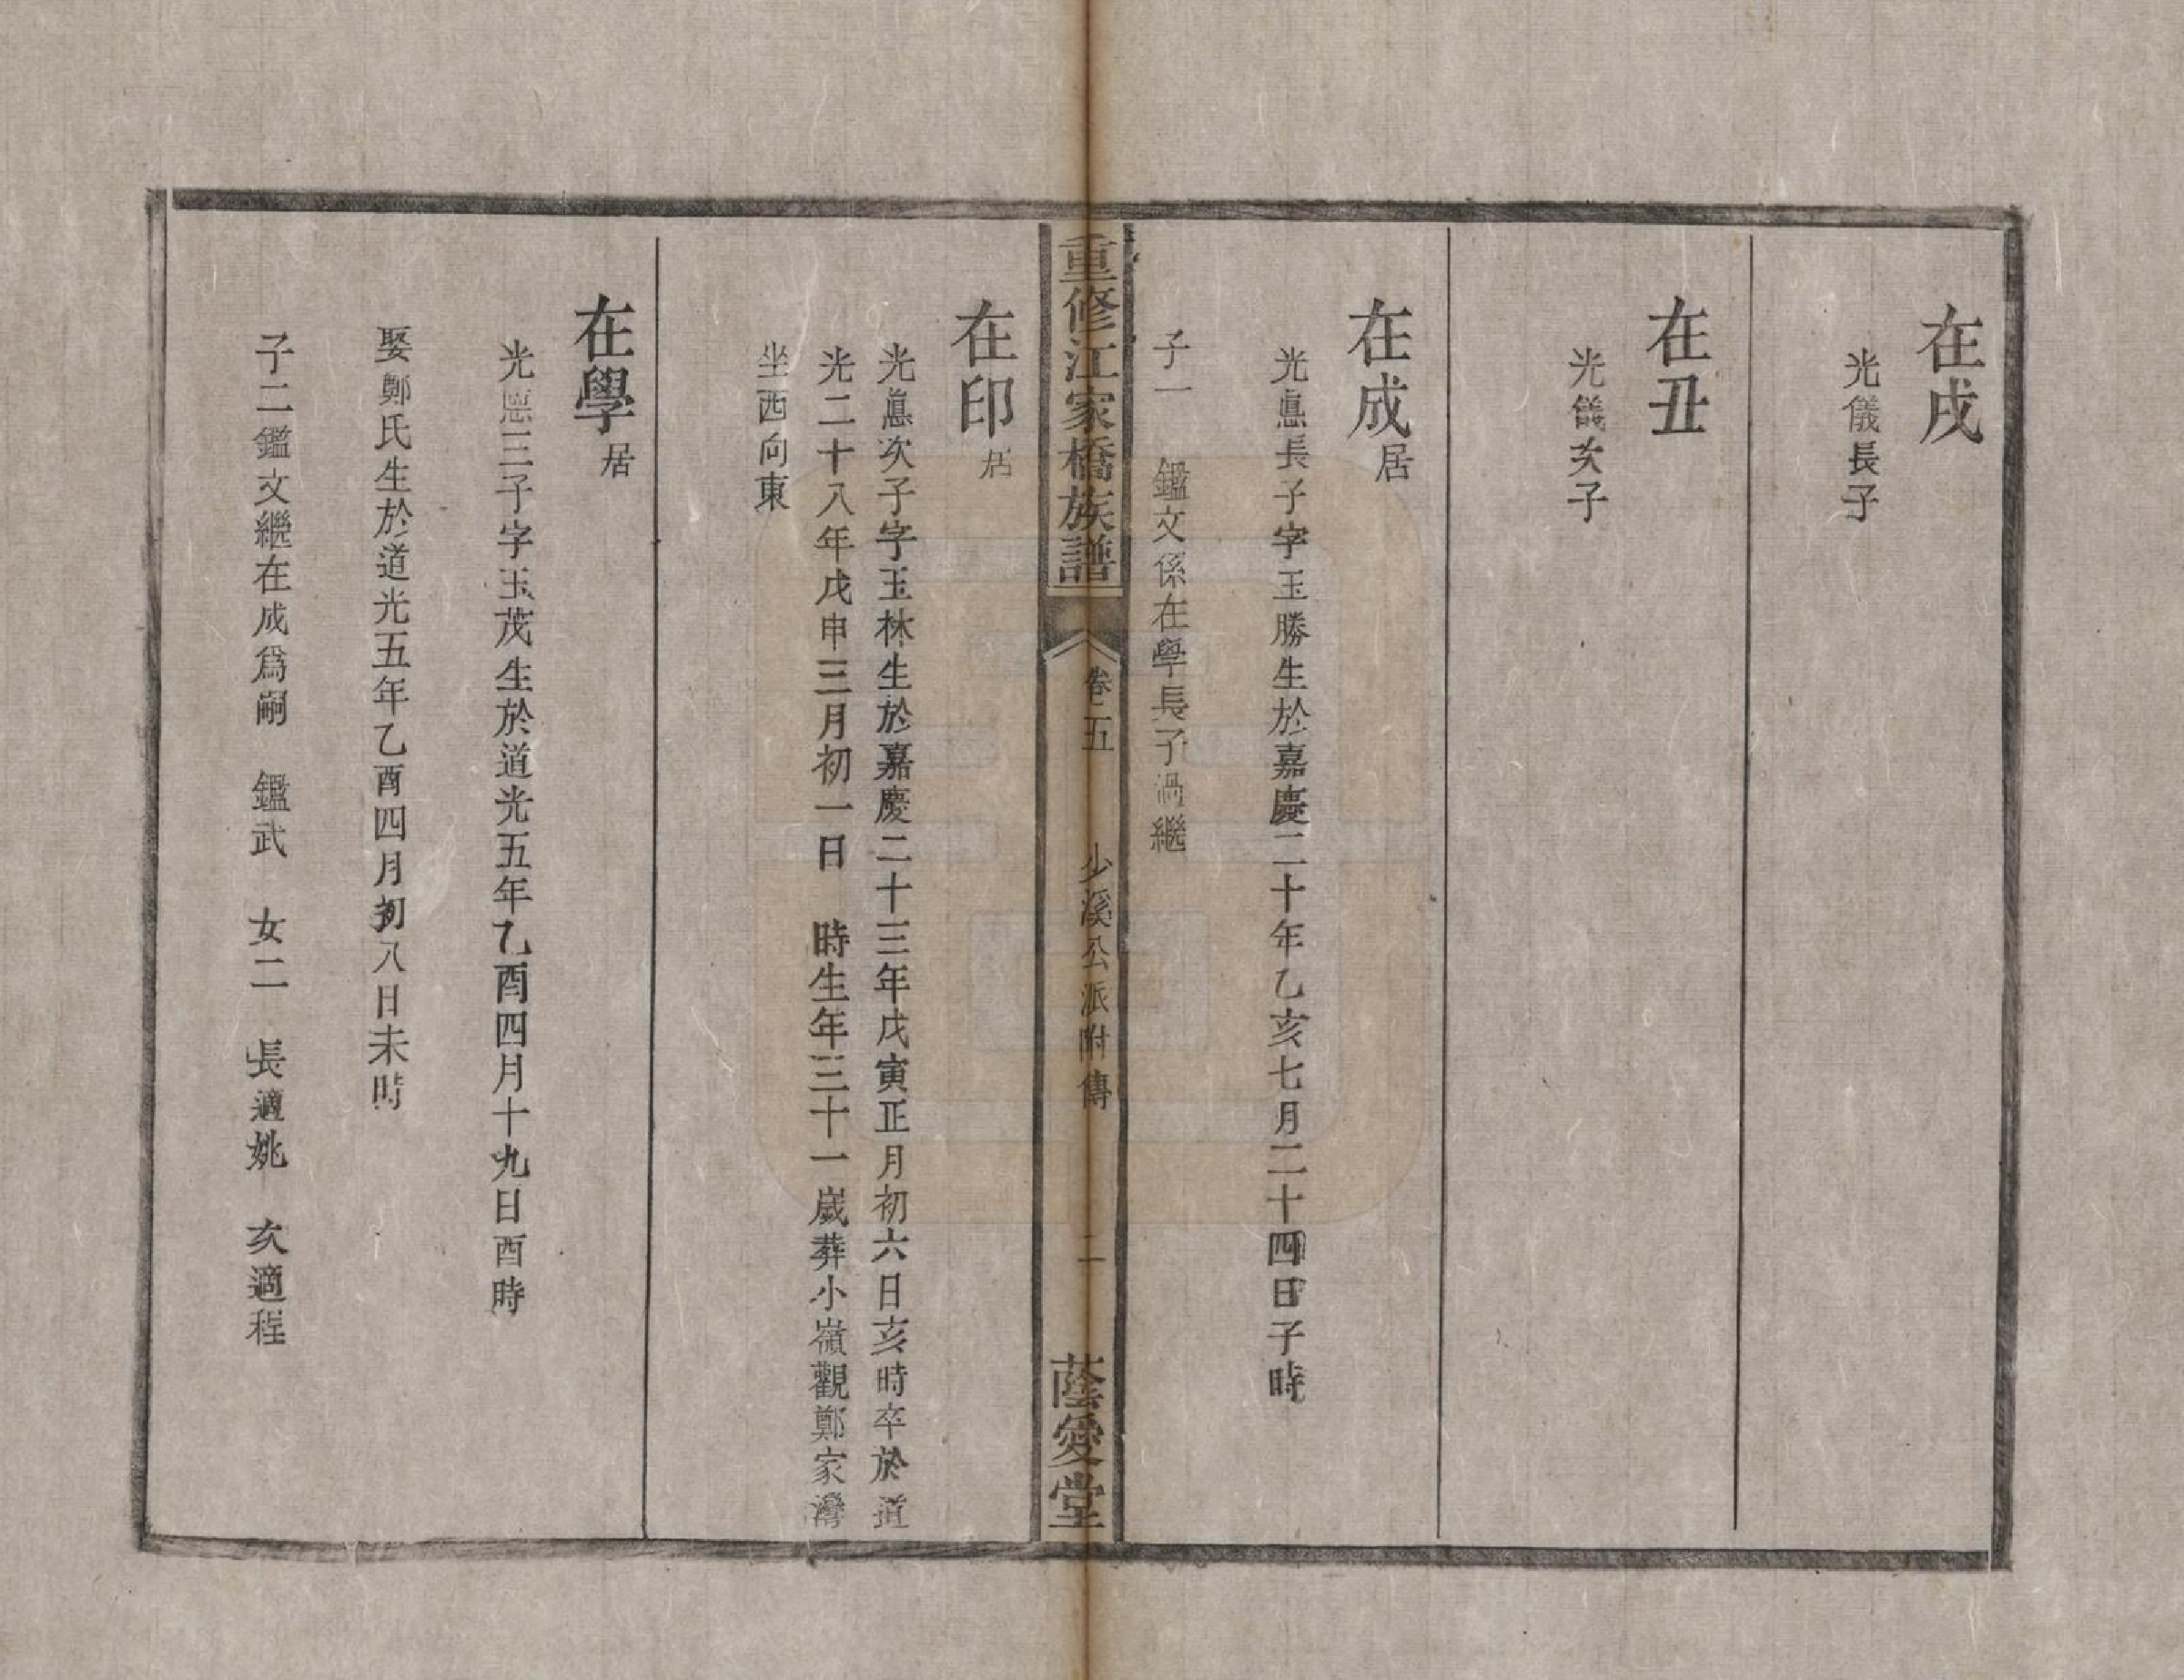 在戌
光儀長子
在丑
光儀次子
在成居
光悳長子字玉勝生於嘉慶二十年乙亥七月二十四日子時
子一　鑑文係在學長子過繼
重修江家橋族譜　卷五　少溪公派附傳　二　蔭愛堂
在印居
光悳次子字玉林生於嘉慶二十三年戊寅正月初六日亥時卒於道
光二十八年戊申三月初一日　時生年三十一歲葬小嶺觀鄭家灣
坐西向東
在學居
光悳三子字玉茂生於道光五年乙酉四月十九日酉時
娶鄭氏生於道光五年乙酉四月初八日未時
子二鑑文繼在成爲嗣　鑑武　女二　長適姚　次適程